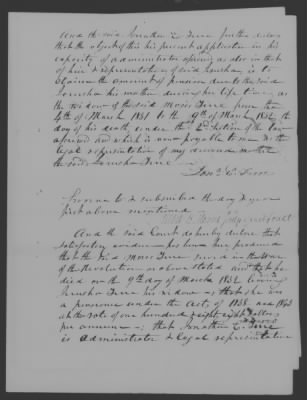 And the said Jonathan E. Terre further declares
that the object of this his present application in his
capacity of administrator aforesaid as also in that
of heir & representative of said Jerusha is to
obtain the amount of pension due to the said
Jerusha his mother during her life time as
the widow of the said Moses Terre from the
4th of March 1831 to the 9th of March 1832 the
day of his death under the 2nd section of the law
aforesaid and which is now payable to me as the
legal representative of my deceased mother
the said Jerusha Terre
Jona. E. Terre
Sworn to & subscribed the day & year
first above mentioned
And the said Court do hereby declare that
satisfactory evidence has been here produced
that the said Moses Terre served in the War
of the Revolution as above stated and that he
died on the 9th day of March 1832 leaving
Jerusha Terre his widow & that she was
a pensioner under the Acts of 1838 and 1843
at the rate of one hundred & eight dollars
per annum; that Jonathan E. Terre
is administrator & legal representative